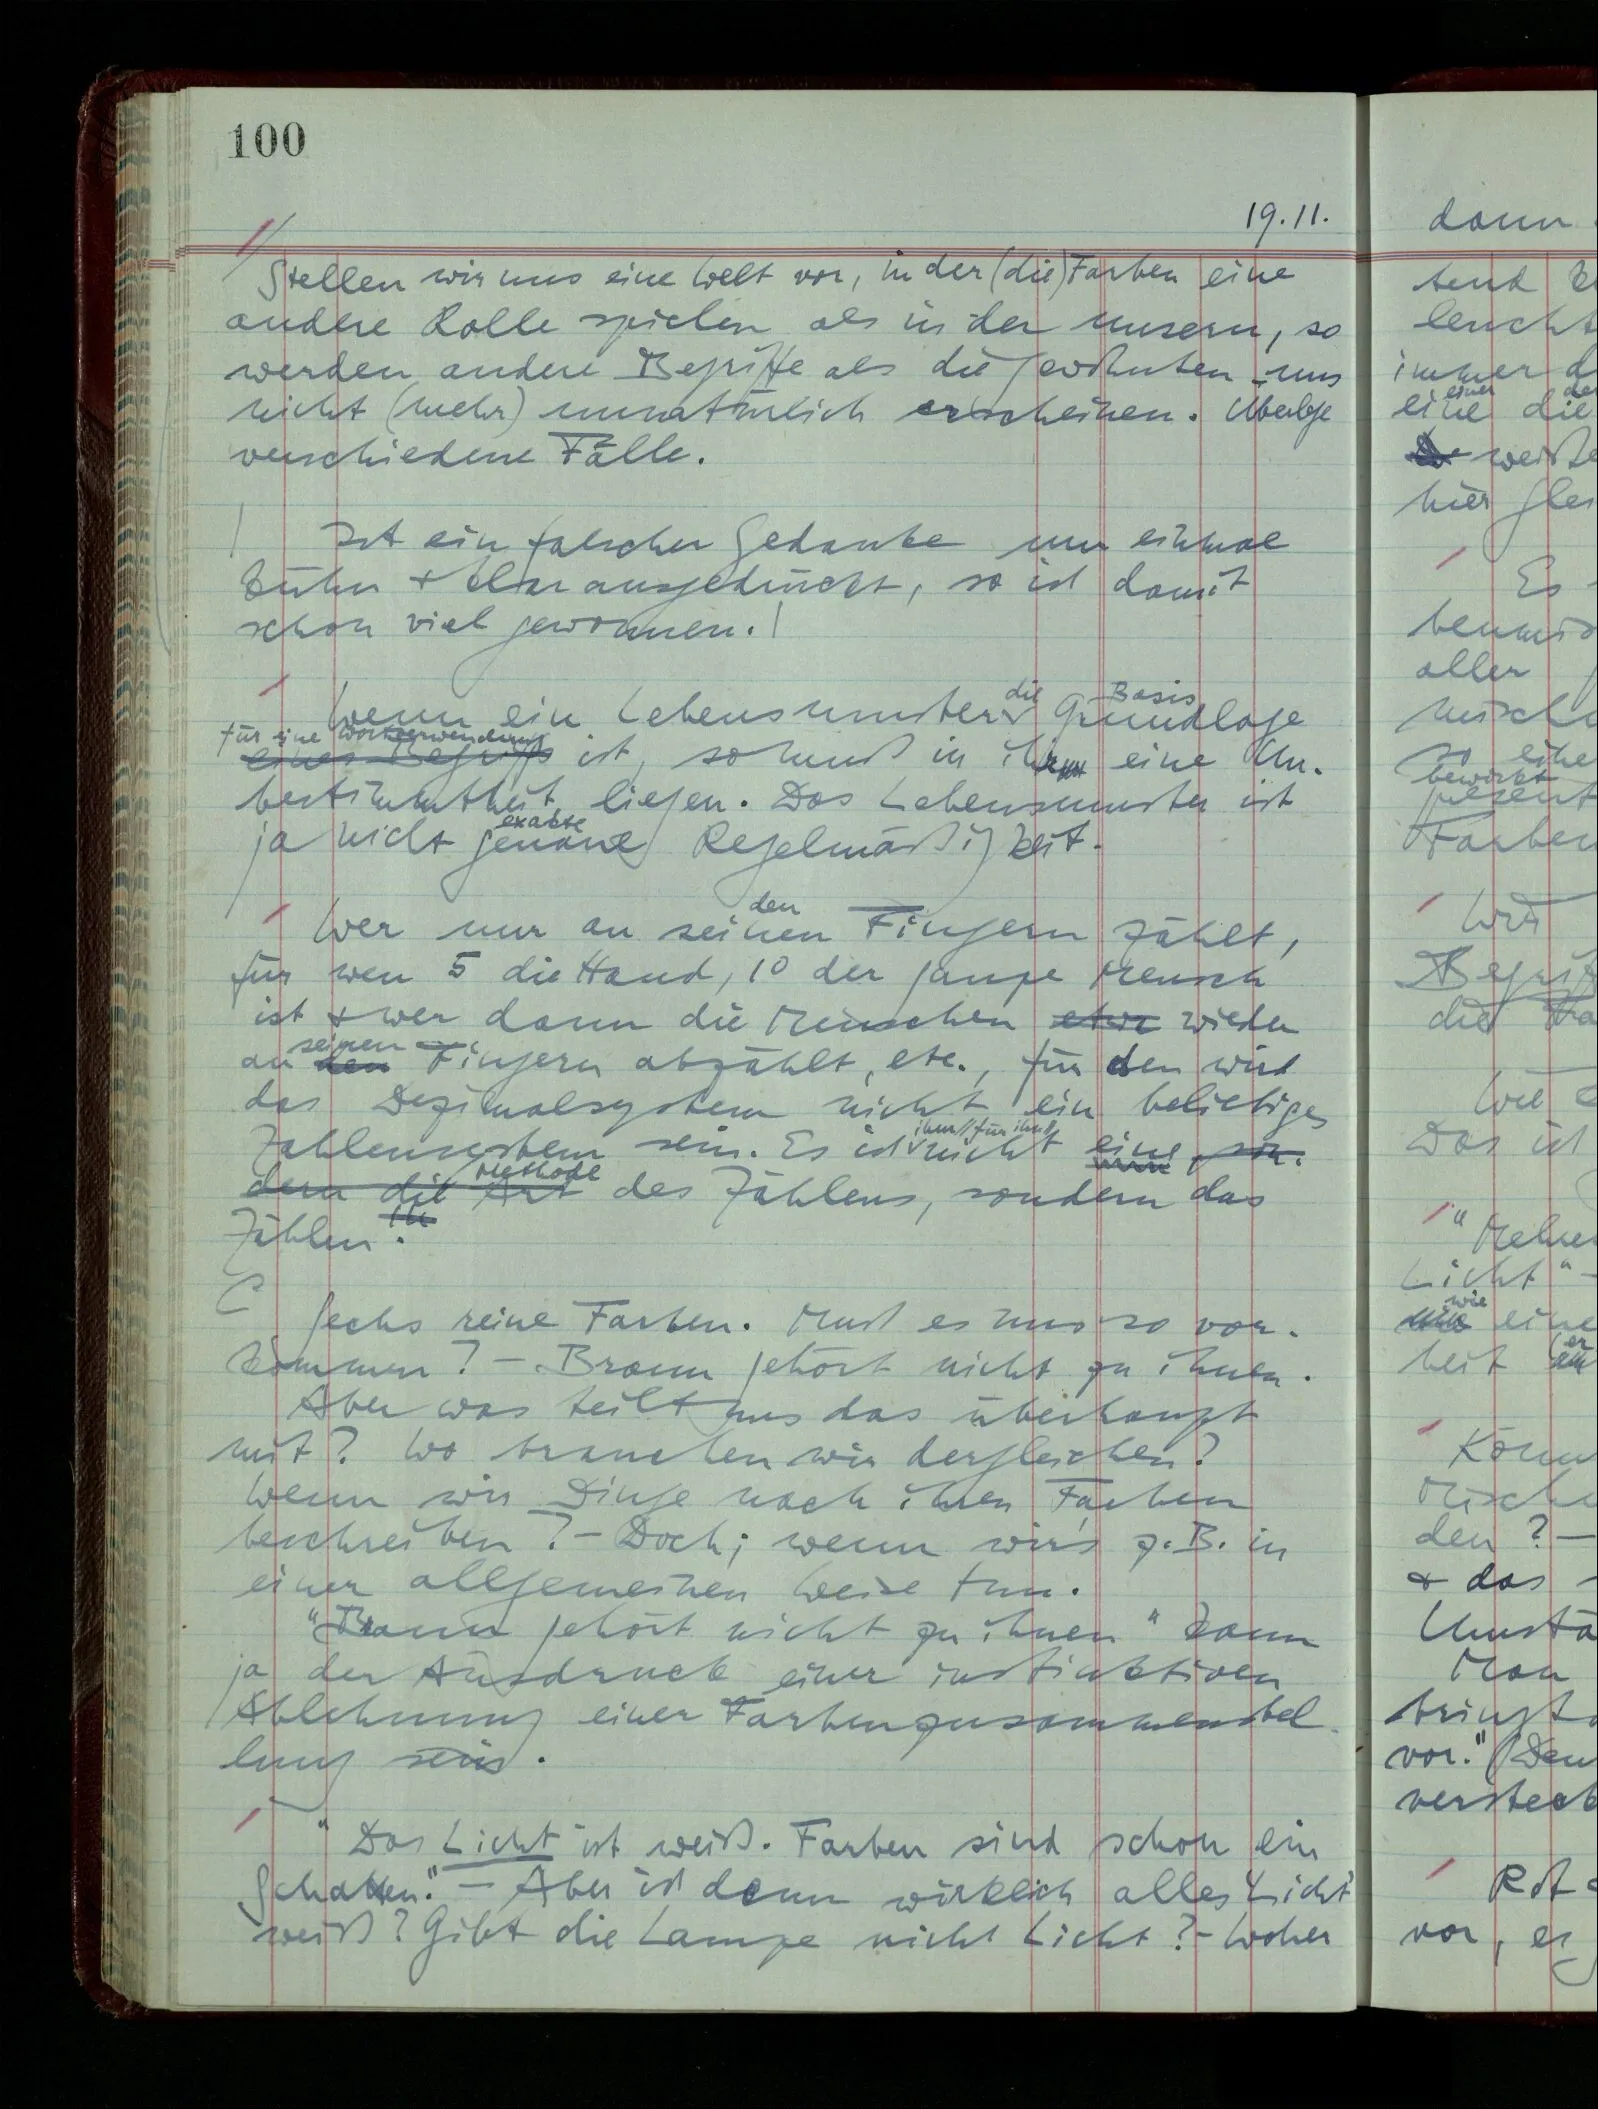 100
19.11.
Stellen wir uns eine Welt vor, in der (die) Farben eine
andere Rolle spielen als in der unsern, so
werden andere Begriffe als die gewohnten uns
nicht (mehr) unnatürlich erscheinen. Überlege
verschiedene Fälle.
Ist ein falscher Gedanke nur einmal
kühn & klar ausgedrückt, so ist damit
schon viel gewonnen.
die Basis
Wenn ein Lebensmuster Grundlage
für eine Wortverwendung
eines Begriffs ist, so muß in ihm eine Un-
bestimmtheit liegen. Das Lebensmuster ist
exakte
ja nicht genaue Regelmäßigkeit.
den
Wer nur an seinen Fingern zählt,
für wen 5 die Hand, 10 der ganze Mensch
ist & wer dann die Menschen etwa wieder
seinen
an den Fingern abzählt, etc., für den wird
das Dezimalsystem nicht ein beliebiges
ihm // für ihn //
Zahlensystem sein. Es ist nicht eine, son-
Methode
dern die Art des Zählens, sondern das
Zählen.
Sechs reine Farben. Muß es uns so vor-
kommen? – Braun gehört nicht zu ihnen.
Aber was teilt uns das überhaupt
mit? Wo brauchen wir dergleichen?
Wenn wir Dinge nach ihren Farben
beschreiben? – Doch; wenn wir's z.B. in
einer allgemeinen Weise tun.
"Braun gehört nicht zu ihnen" kann
ja der Ausdruck einer instinktiven
Ablehnung einer Farbenzusammenstel-
lung sein.
"Das Licht ist weiß. Farben sind schon ein
Schatten." – Aber ist denn wirklich alles Licht
weiß? Gibt die Lampe nicht Licht? – Woher
dann
leucht
immer d
einer der
eine die
weiße
hier glei
Es
aller
misch
so eine
bewirkt
Farben
Wir
Begrif
die
Wie
Das ist
"Mehre
Licht" –
wie
eine
heit
Könn
Misch
den? –
& das
Umstä
Man
bringt
vor." (Den
versteck
Rot
vor, er